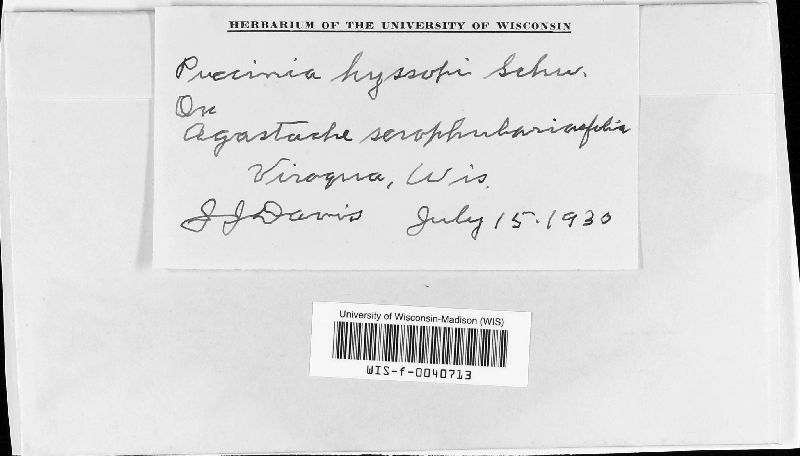 HERBARIUM OF THE UNIVERSITY OF WISCONSIN
Puccinia hyssopi Schw.
On
Agastache scrophulariaefolia
Viroqua, Wis.
J J Davis July 15. 1930
University of Wisconsin-Madison (WIS)
WIS-f-0040713